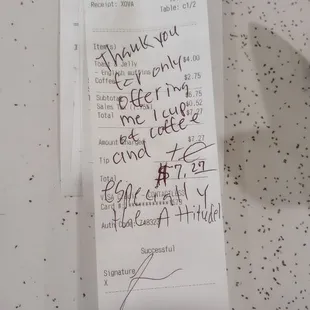 Receipt: XUVA
Table: c1/2
Item(s)
Thank you
Toast & Jelly $4.00
- English muffin
f-r only
Coffee $2.75
offering
Subtotal $6.75
me 1 cup
Sales $0.52
Total $7.27
of coffee
Amount Charged $7.27
and
Tip
Total $7.27
especially
VISA
Card #
the Attitude!
Auth Code:
Successful
Signature
X